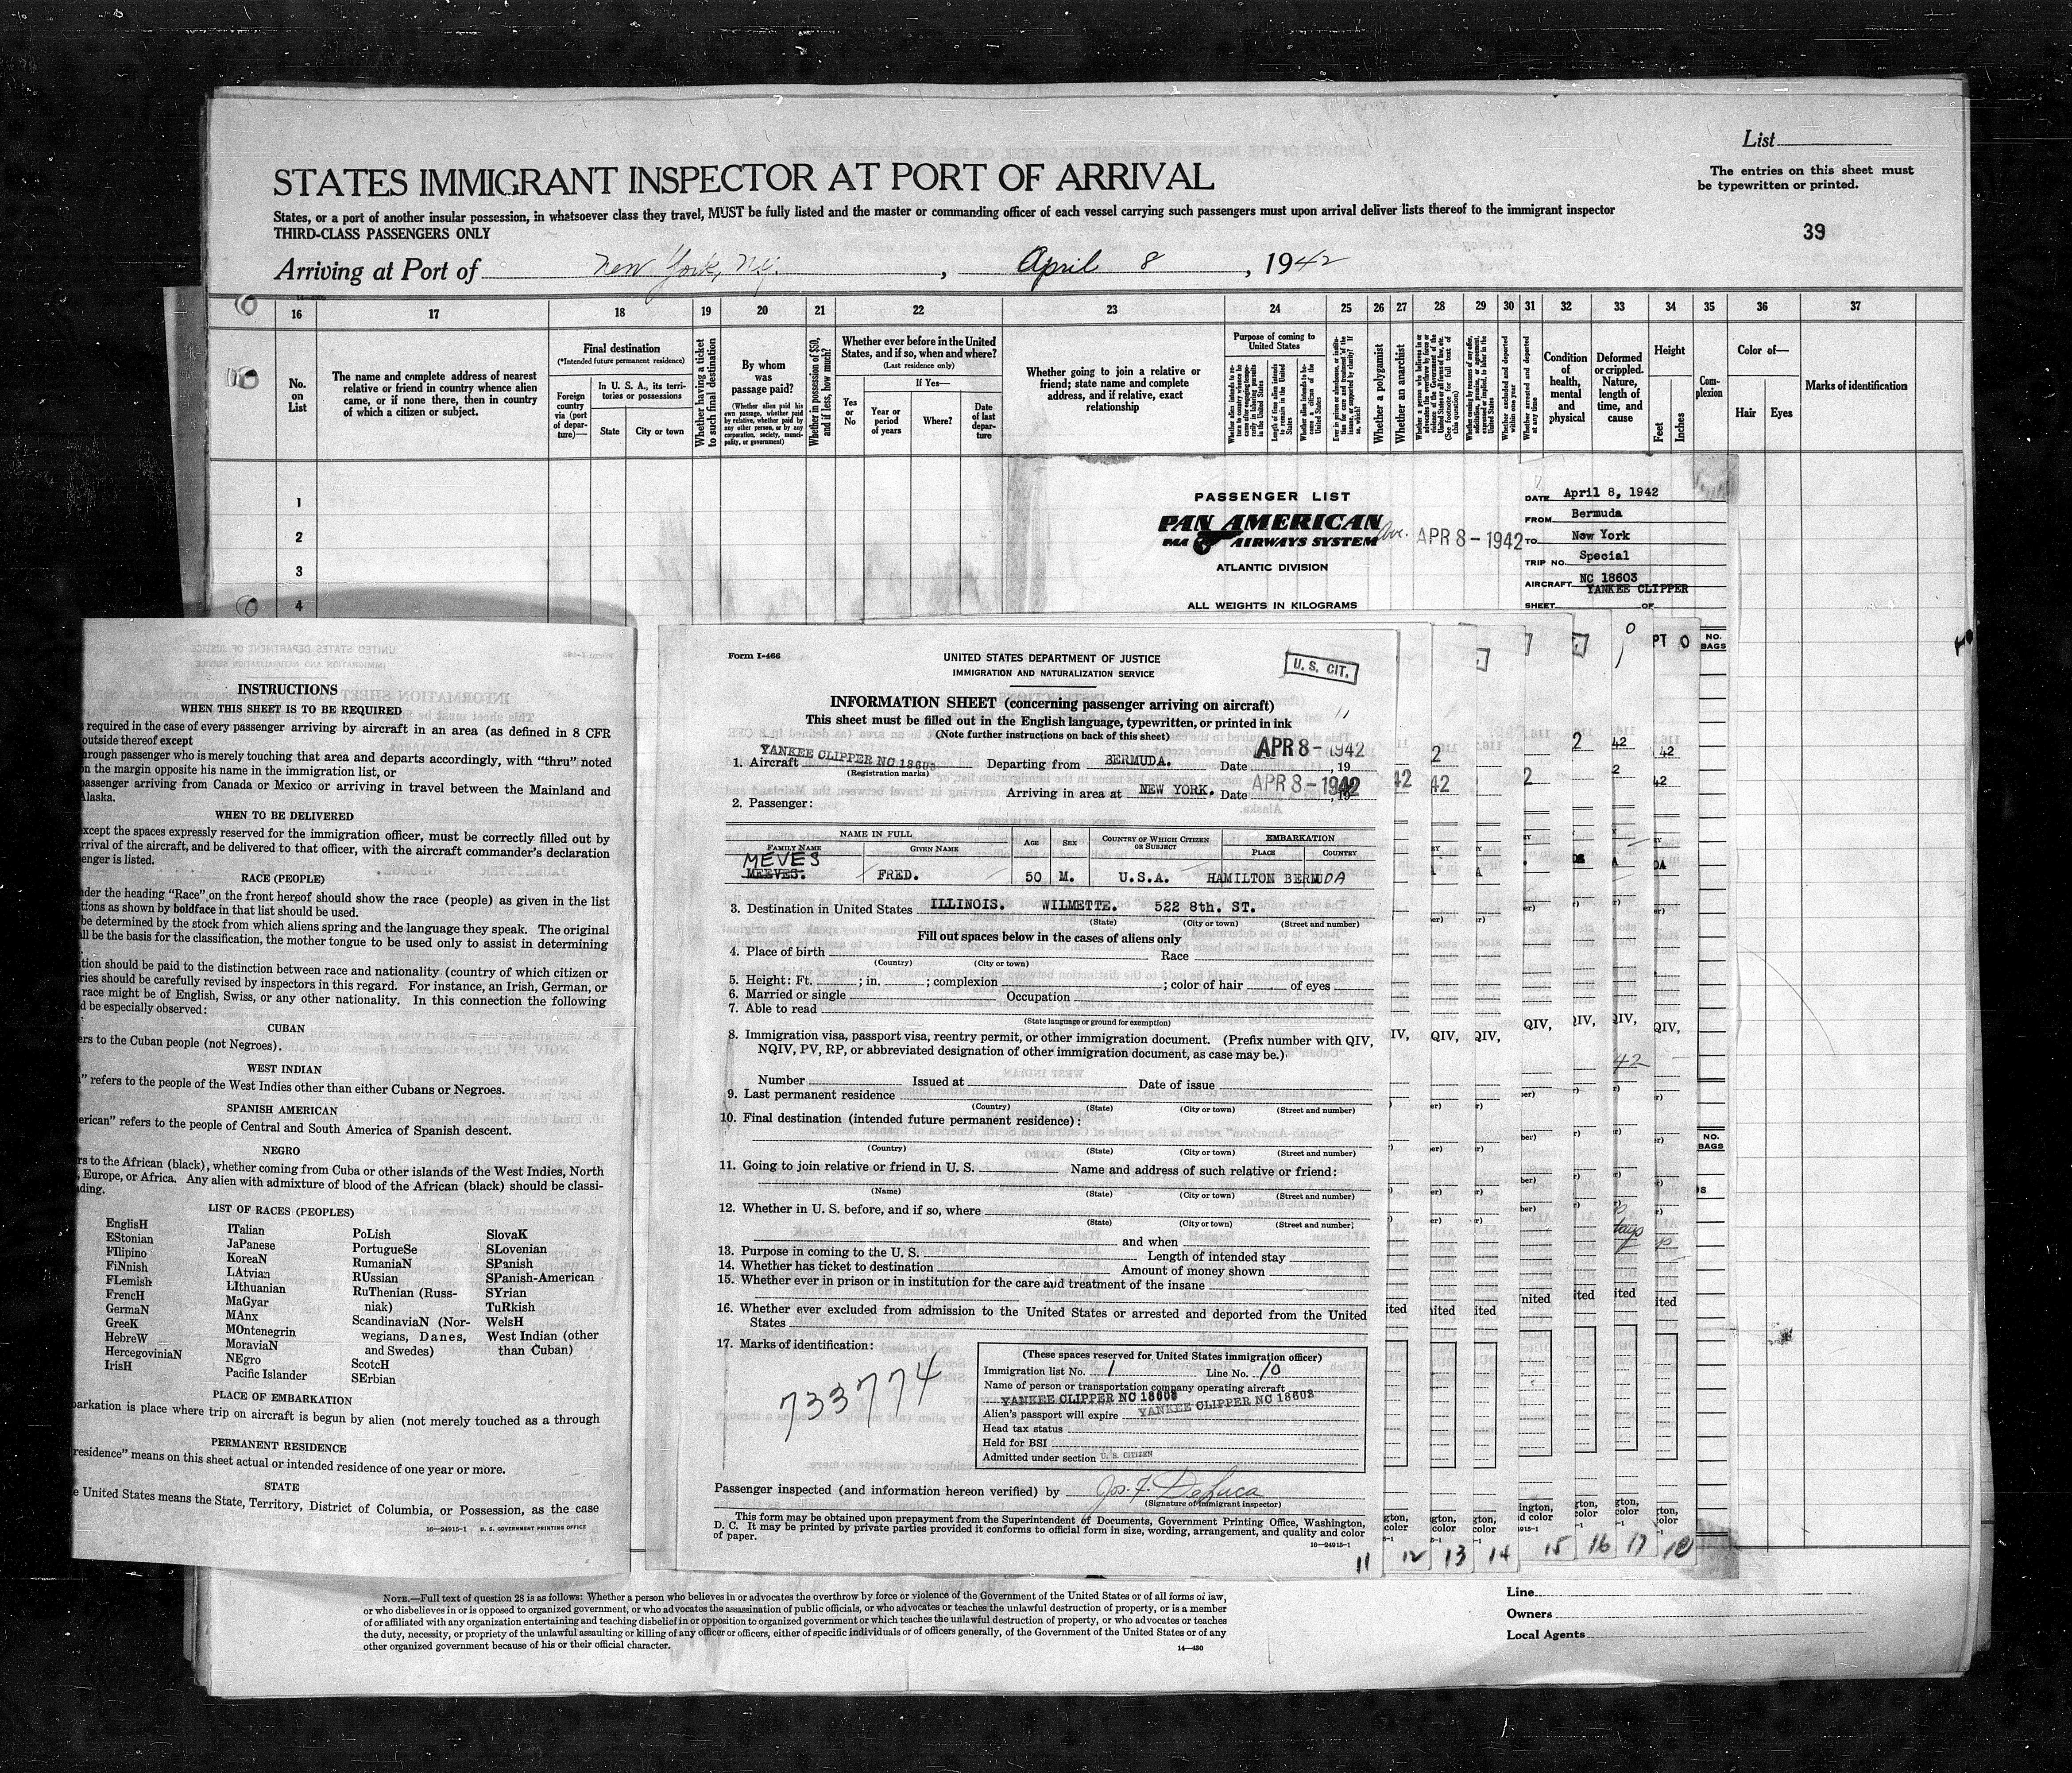 List
The entries on this sheet must
be typewritten or printed.
STATES IMMIGRANT INSPECTOR AT PORT OF ARRIVAL
States, or a port of another insular possession, in whatsoever class they travel, MUST be fully listed and the master or commanding officer of each vessel carrying such passengers must upon arrival deliver lists thereof to the immigrant inspector
THIRD-CLASS PASSENGERS ONLY
39
Arriving at Port of New York, N.Y., April 8, 1942
16 17 18 19 20 21 22 23 24 25 26 27 28 29 30 31 32 33 34 35 36 37
No. on List
The name and complete address of nearest
relative or friend in country whence alien
came, or if none there, then in country
of which a citizen or subject.
Final destination
(*Intended future permanent residence)
Foreign country via (port of departure)—
In U. S. A., its territories or possessions
State
City or town
Whether having a ticket to such final destination
By whom was passage paid?
(Whether alien paid his own passage, whether paid by relative, whether paid by any other person, or by any corporation, society, municipality, or government)
Whether in possession of $50, and if less, how much?
Whether ever before in the United
States, and if so, when and where?
(Last residence only)
Yes or No
If Yes—
Year or period of years
Where?
Date of last departure
Whether going to join a relative or
friend; state name and complete
address, and if relative, exact
relationship
Purpose of coming to United States
Whether a polygamist
Whether an anarchist
Condition of health, mental and physical
Deformed or crippled. Nature, length of time, and cause
Height
Feet
Inches
Complexion
Color of—
Hair
Eyes
Marks of identification
1
2
3
4
PASSENGER LIST
PAN AMERICAN
PAA AIRWAYS SYSTEM
ATLANTIC DIVISION
ALL WEIGHTS IN KILOGRAMS
APR 8 - 1942
DATE April 8, 1942
FROM Bermuda
TO New York
TRIP NO. Special
AIRCRAFT NC 18603
YANKEE CLIPPER
SHEET OF
NO. BAGS
INSTRUCTIONS
WHEN THIS SHEET IS TO BE REQUIRED
required in the case of every passenger arriving by aircraft in an area (as defined in 8 CFR
outside thereof except
hrough passenger who is merely touching that area and departs accordingly, with "thru" noted
n the margin opposite his name in the immigration list, or
passenger arriving from Canada or Mexico or arriving in travel between the Mainland and
Alaska.
WHEN TO BE DELIVERED
xcept the spaces expressly reserved for the immigration officer, must be correctly filled out by
rrival of the aircraft, and be delivered to that officer, with the aircraft commander's declaration
enger is listed.
RACE (PEOPLE)
der the heading "Race" on the front hereof should show the race (people) as given in the list
tions as shown by boldface in that list should be used.
be determined by the stock from which aliens spring and the language they speak. The original
ll be the basis for the classification, the mother tongue to be used only to assist in determining
tion should be paid to the distinction between race and nationality (country of which citizen or
ries should be carefully revised by inspectors in this regard. For instance, an Irish, German, or
race might be of English, Swiss, or any other nationality. In this connection the following
d be especially observed:
CUBAN
ers to the Cuban people (not Negroes).
WEST INDIAN
" refers to the people of the West Indies other than either Cubans or Negroes.
SPANISH AMERICAN
erican" refers to the people of Central and South America of Spanish descent.
NEGRO
rs to the African (black), whether coming from Cuba or other islands of the West Indies, North
, Europe, or Africa. Any alien with admixture of blood of the African (black) should be classi-
ding.
LIST OF RACES (PEOPLES)
EnglisH
EStonian
FIlipino
FiNnish
FLemish
FrencH
GermaN
GreeK
HebreW
HercegoviniaN
IrisH
ITalian
JaPanese
KoreaN
LAtvian
LIthuanian
MaGyar
MAnx
MOntenegrin
MoraviaN
NEgro
Pacific Islander
PoLish
PortugueSe
RumaniaN
RUssian
RuThenian (Russ-
niak)
ScandinaviaN (Nor-
wegians, Danes,
and Swedes)
ScotcH
SErbian
SlovaK
SLovenian
SPanish
SPanish-American
SYrian
TuRkish
WelsH
West Indian (other
than Cuban)
PLACE OF EMBARKATION
barkation is place where trip on aircraft is begun by alien (not merely touched as a through
PERMANENT RESIDENCE
residence" means on this sheet actual or intended residence of one year or more.
STATE
e United States means the State, Territory, District of Columbia, or Possession, as the case
16—24915-1 U. S. GOVERNMENT PRINTING OFFICE
Form I-466
UNITED STATES DEPARTMENT OF JUSTICE
IMMIGRATION AND NATURALIZATION SERVICE
U. S. CIT.
INFORMATION SHEET (concerning passenger arriving on aircraft)
This sheet must be filled out in the English language, typewritten, or printed in ink
(Note further instructions on back of this sheet)
1. Aircraft YANKEE CLIPPER NC 18603 Departing from BERMUDA. Date APR 8 - 1942, 19
(Registration marks)
Arriving in area at NEW YORK. Date APR 8 - 1942, 19
2. Passenger:
NAME IN FULL
FAMILY NAME GIVEN NAME AGE SEX COUNTRY OF WHICH CITIZEN OR SUBJECT EMBARKATION PLACE COUNTRY
MEVES
MEEVES. FRED. 50 M. U.S.A. HAMILTON BERMUDA
3. Destination in United States ILLINOIS. WILMETTE. 522 8th. ST.
(State) (City or town) (Street and number)
Fill out spaces below in the cases of aliens only
4. Place of birth Race
(Country) (City or town)
5. Height: Ft. ; in. ; complexion ; color of hair of eyes
6. Married or single Occupation
7. Able to read
(State language or ground for exemption)
8. Immigration visa, passport visa, reentry permit, or other immigration document. (Prefix number with QIV,
NQIV, PV, RP, or abbreviated designation of other immigration document, as case may be.)
Number Issued at Date of issue
9. Last permanent residence
(Country) (State) (City or town) (Street and number)
10. Final destination (intended future permanent residence):
(Country) (State) (City or town) (Street and number)
11. Going to join relative or friend in U. S. Name and address of such relative or friend:
(Name) (State) (City or town) (Street and number)
12. Whether in U. S. before, and if so, where
(State) (City or town) (Street and number)
and when
13. Purpose in coming to the U. S. Length of intended stay
14. Whether has ticket to destination Amount of money shown
15. Whether ever in prison or in institution for the care and treatment of the insane
16. Whether ever excluded from admission to the United States or arrested and deported from the United
States
17. Marks of identification:
733774
(These spaces reserved for United States immigration officer)
Immigration list No. 1 Line No. 10
Name of person or transportation company operating aircraft
YANKEE CLIPPER NC 18603
Alien's passport will expire YANKEE CLIPPER NC 18603
Head tax status
Held for BSI
Admitted under section U. S. CITIZEN
Passenger inspected (and information hereon verified) by Jos. F. DeLuca
(Signature of immigrant inspector)
This form may be obtained upon prepayment from the Superintendent of Documents, Government Printing Office, Washington,
D. C. It may be printed by private parties provided it conforms to official form in size, wording, arrangement, and quality and color
of paper.
16—24915-1
11 12 13 14 15 16 17 18
NOTE.—Full text of question 28 is as follows: Whether a person who believes in or advocates the overthrow by force or violence of the Government of the United States or of all forms of law,
or who disbelieves in or is opposed to organized government, or who advocates the assassination of public officials, or who advocates or teaches the unlawful destruction of property, or is a member
of or affiliated with any organization entertaining and teaching disbelief in or opposition to organized government or which teaches the unlawful destruction of property, or who advocates or teaches
the duty, necessity, or propriety of the unlawful assaulting or killing of any officer or officers, either of specific individuals or of officers generally, of the Government of the United States or of any
other organized government because of his or their official character.
14—430
Line
Owners
Local Agents